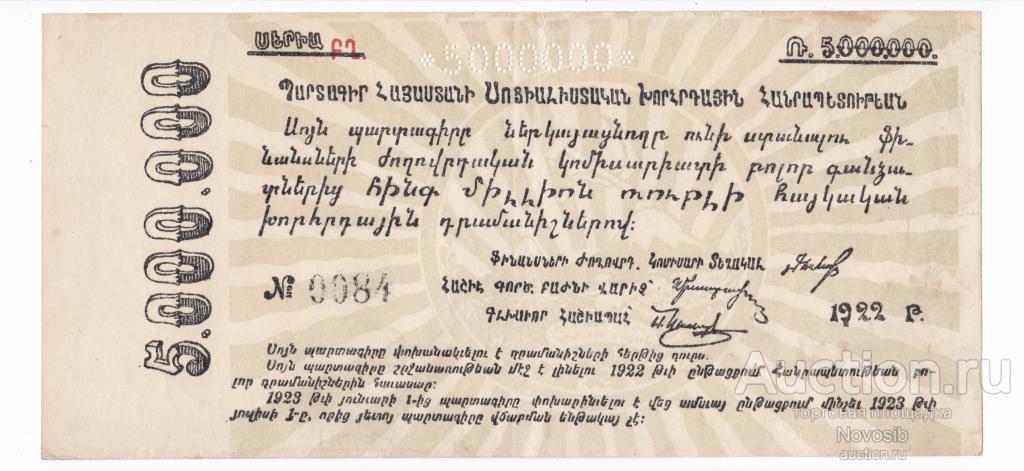 ՍԵՐԻԱ ԲՂ
*5000000*
Ռ. 5.000.000.
5.000.000
ՊԱՐՏԱԳԻՐ ՀԱՅԱՍՏԱՆԻ ՍՈՑԻԱԼԻՍՏԱԿԱՆ ԽՈՐՀՐԴԱՅԻՆ ՀԱՆՐԱՊԵՏՈՒԹԵԱՆ
Սոյն պարտագիրը ներկայացնողը ունի ստանալու ֆի-
նանսների ժողովրդական կոմիսարիատի բոլոր գանձա-
տներից հինգ միլլիոն ռուբլի հայկական
խորհրդային դրամանիշներով:
ՖԻՆԱՆՍՆԵՐԻ ԺՈՂՈՎՐԴ. ԿՈՄԻՍԱՐԻ ՏԵՂԱԿԱԼ
ՀԱՇԻՒ. ԳՈՐԾ. ԲԱԺՆԻ ՎԱՐԻՉ՝
ԳԼԽԱՒՈՐ ՀԱՇԻԱՊԱՀ՝
№ 0084
1922 Թ.
Սոյն պարտագիրը փոխանակելու է դրամանիշների հերթից դուրս.
Սոյն պարտագիրը շրջանառութեան մէջ է լինելու 1922 թւի ընթացքում Հանրապետութեան բո-
լոր դրամանիշներին հաւասար:
1923 թւի յունւարի 1-ից պարտագիրը փոխարինելու է վեց ամսայ ընթացքում մինչեւ 1923 թւի
յուլիսի 1-ը, որից յետոյ պարտագիրը վճարման ենթակայ չէ:
Auction.ru
торговая площадка
Novosib
auction.ru